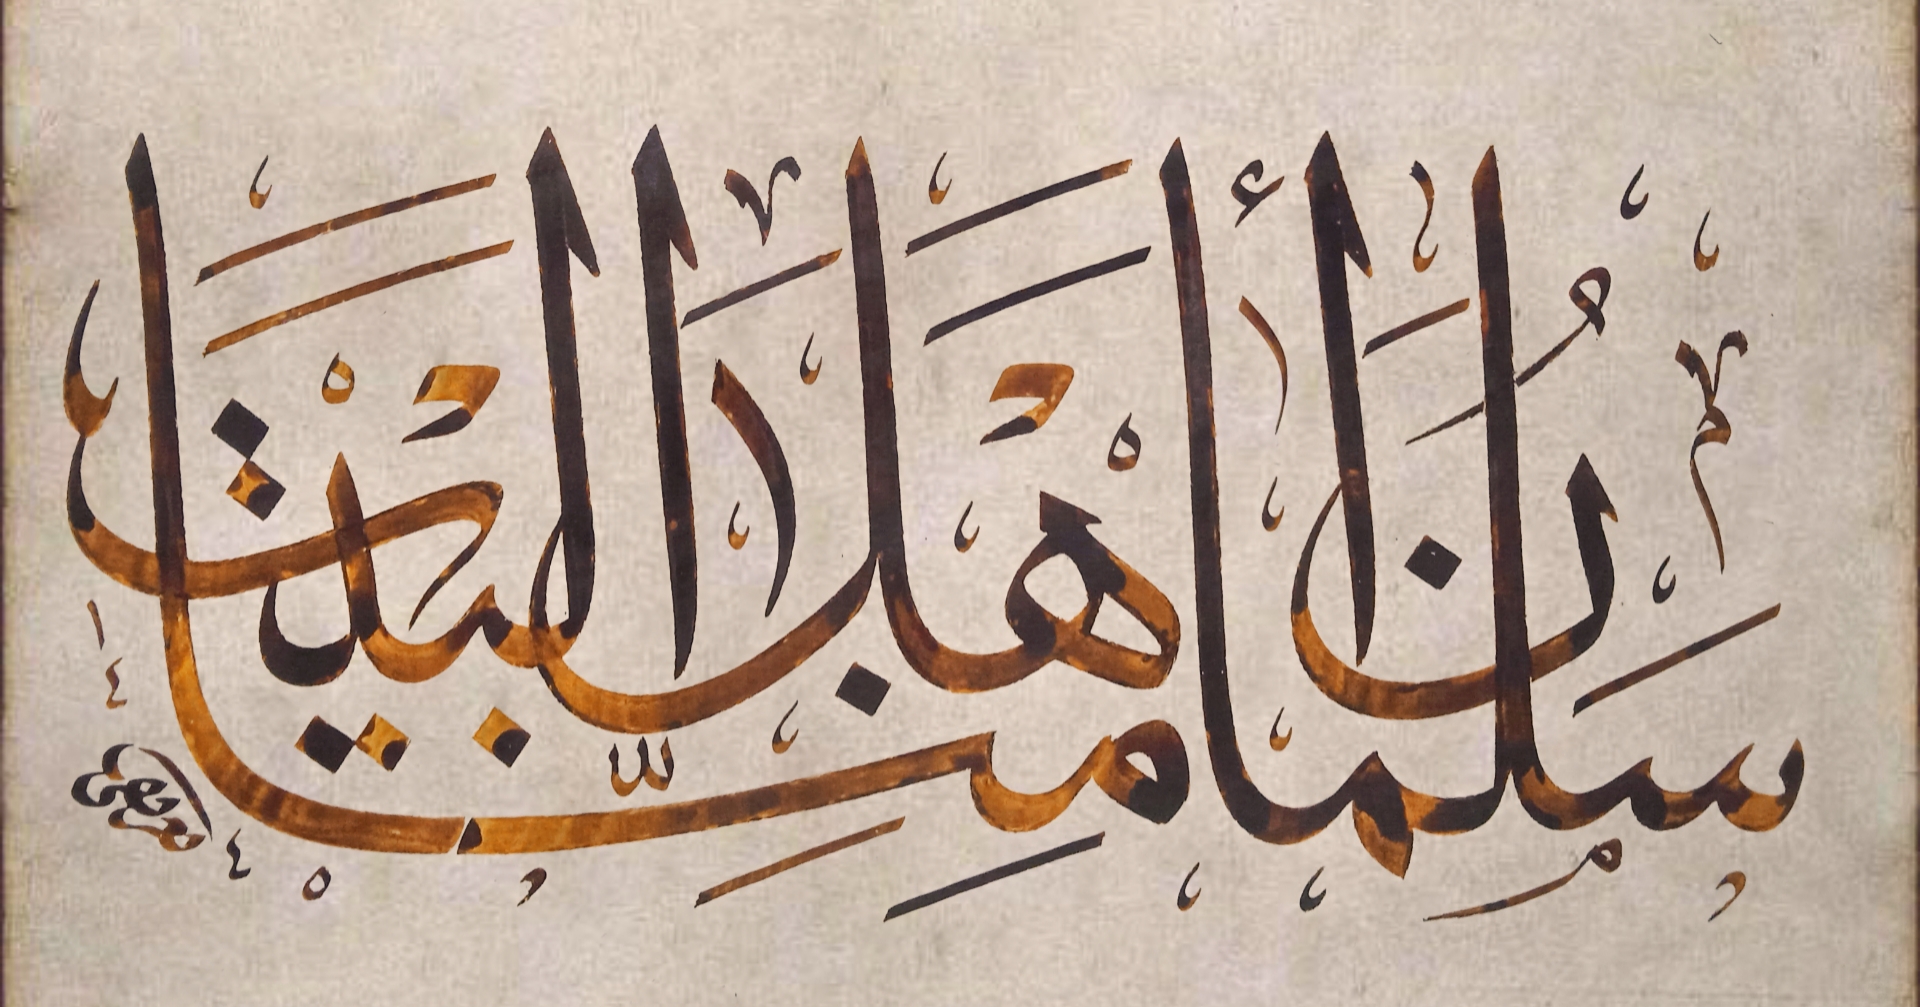 سلمان منا أهل البيت
١٤٤٥